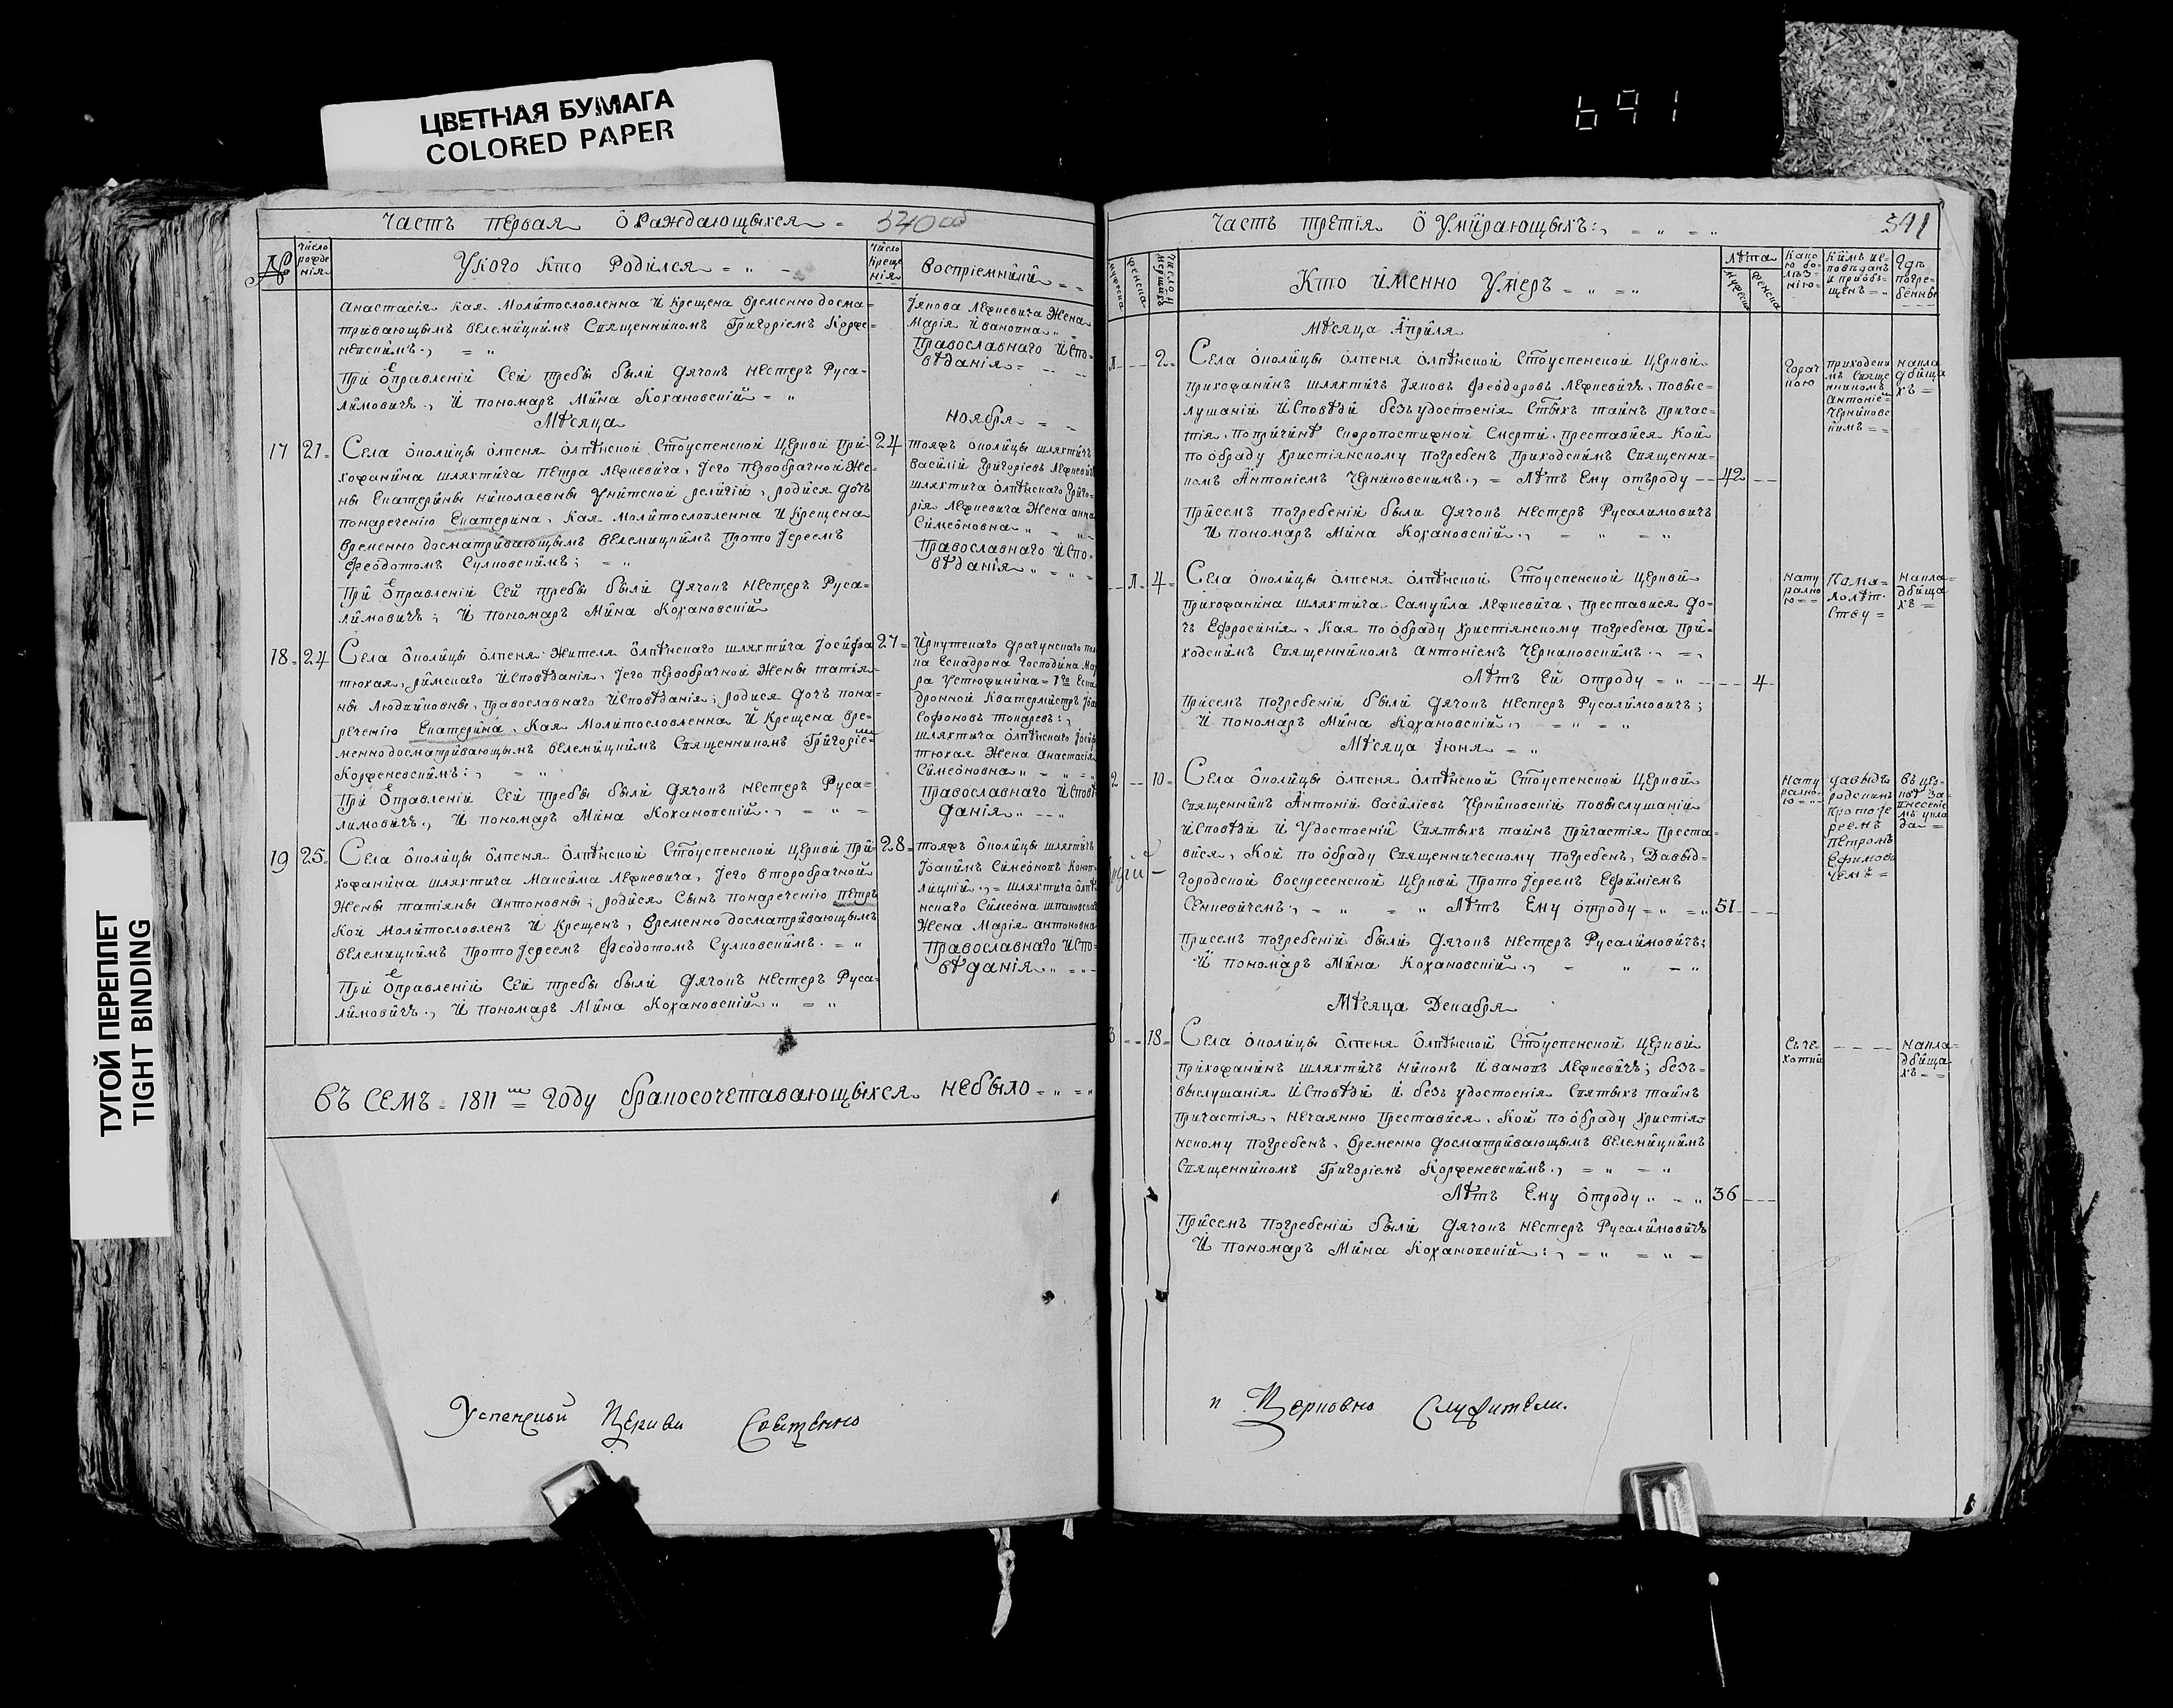 ЦВЕТНАЯ БУМАГА
COLORED PAPER
691
ТУГОЙ ПЕРЕПЛЕТ
TIGHT BINDING
Часть первая О Раждающыхся
540 об
№
Число рожденія
У кого Кто Родился
Число Крещенія
Воспріемники
Анастасія, Кая Молитословленна И Крещена Временно досма=
тривающымъ Велемицкимъ Священникомъ Григоріемъ Корже=
невскимъ.,
При Отправленіи Сей требы были Дячокъ Нестеръ Руса=
лимовичъ., И пономарь Мина Кохановскій
Якова Лержневича Жена
Марія Ивановна
Православнаго Испо=
вѣданія
Мѣсяца
Ноября
17
21
Села Ополицы Олпеня Олпѣнской Стоуспенской Церкви При=
хожанина шляхтича Петра, Его Первобрачной Же=
ны Екатерины Николаевны Унитской релігіи, родися дочъ
понареченію Екатерина, Кая Молитословленна И Крещена
Временно досматривающымъ Велемицкимъ Прото Іереемъ
Феодотомъ Сулковскимъ;
При Отправленіи Сей требы были Дячокъ Нестеръ Руса=
лимовичъ; И пономарь Мина Кохановскій
24
Тояжъ Околицы шляхтичъ
Василій Григоріевъ
шляхтича Олпѣнскаго Григо=
рія Жена Анна
Симеоновна
Православнаго Испо=
вѣданія
18
24
Села Ополицы Олпеня Жителя Олпѣнскаго шляхтича Іосифа
тюхая, римскаго Исповѣданія, Его первобрачной Жены татія=
ны, православнаго Исповѣданія; родися дочъ пона=
реченію Екатерина, Кая Молитословленна И Крещена Вре=
менно досматривающымъ Велемицкимъ Священникомъ Григоріе=
Корженевскимъ:,
При Отправленіи Сей требы были Дячокъ Нестеръ Руса=
лимовичъ., И пономарь Мина Кохановскій.,
27
Иркутскаго Драгунскаго
ка Ескадрона Господина
дронной Кватермистръ
Софоновъ
шляхтича Олпѣнскаго
тюхая Жена Анастасія
Симеоновна
Православнаго Исповѣ
данія
19
25
Села Ополицы Олпеня Олпѣнской Стоуспенской Церкви При=
хожанина шляхтича Максима, Его второбрачной
Жены татіяны Антоновны; родися Сынъ понареченію Петръ
Кой Молитословленъ И Крещенъ, Временно досматривающымъ
Велемицкимъ Прото Іереемъ Феодотомъ Сулковскимъ.
При Отправленіи Сей требы были Дячокъ Нестеръ Руса=
лимовичъ., И пономарь Мина Кохановскій
28
Тояжъ Ополицы шляхтичъ
Іоаннъ Симеоновъ
шляхтича
нскаго Симеона
Жена Марія Антоновна
Православнаго Испо=
вѣданія
Въ Семъ 1811 Году бракосочетавающыхся небыло
Успенской Церкви Священно
Часть третія О Умирающыхъ:,
541
Кто Именно Умеръ
Лѣта
мужеска
женска
Какою болѣзнію
Кимъ исповѣданъ и пріобщенъ
Гдѣ погребенны
Мѣсяца Апріля
1
2
Села Ополицы Олпеня Олпѣнской Стоуспенской Церкви
прихожанинъ шляхтичъ Яковъ Феодоровъ, повыс=
лушаніи Исповѣди безъ удостоенія Стыхъ таинъ Причас=
тія, попричинѣ скоропостижной Смерти, преставися Кой
по обраду Христіянскому Погребенъ Приходскимъ Священни=
комъ Антоніемъ Черниковскимъ., Лѣтъ Ему отъроду
42
Присемъ погребеніи были Дячокъ Нестеръ Русалимовичъ
И пономарь Мина Кохановскій.,
Горач
кою
приходски
мъ Свяще
нникомъ
Антоніе=
Черниковс
кимъ
накла
дбища
хъ
1
4
Села Ополицы Олпеня Олпѣнской Стоуспенской Церкви
Прихожанина шляхтича Самуйла, преставися до=
чъ Ефросинія, Кая по обраду Христіянскому Погребена При=
ходскимъ Священникомъ Антоніемъ Черниковскимъ.,
Лѣтъ Ей отроду
4
Присемъ Погребеніи были Дячокъ Нестеръ Русалимовичъ;
И пономарь Мина Кохановскій.,
нату
рално
ю
Пома=
лолѣт
ству
накла=
дбища
хъ
Мѣсяца Іюня
2
10
Села Ополицы Олпеня Олпѣнской Стоуспенской Церкви
Священникъ Антоній Василіевъ Черниковскій повыслушаніи
Исповѣди И Удостоеніи Святыхъ таинъ Причастія Преста=
вися, Кой по обраду Священническому Погребенъ, Давыд=
городской Воскресенской Церкви Прото Іереемъ Ефиміемъ
Сенкевичемъ., Лѣтъ Ему отроду
51
Присемъ погребеніи были Дячокъ Нестеръ Русалимовичъ;
И пономарь Мина Кохановскій.,
нату
рално
ю
давыдъ
родскимъ
Протоіе
реемъ
Петромъ
Ефимови
чемъ
въ цер=
квѣ
Мѣсяца Декабря
3
18
Села Ополицы Олпеня Олпѣнской Стоуспенской Церкви
Прихожанинъ шляхтичъ Никонъ Ивановъ; безъ=
выслушанія Исповѣди И безъ удостоенія Святыхъ таинъ
Причастія, нечаянно Преставися, Кой по обраду Христія=
нскому Погребенъ, Временно досматривающымъ Велемицкимъ
Священникомъ Григоріемъ Корженевскимъ.,
Лѣтъ Ему отроду
36
Присемъ Погребеніи были Дячокъ Нестеръ Русалимовичъ
И пономарь Мина Кохановскій:,
накла=
дбища
хъ
и Церковно Служители.